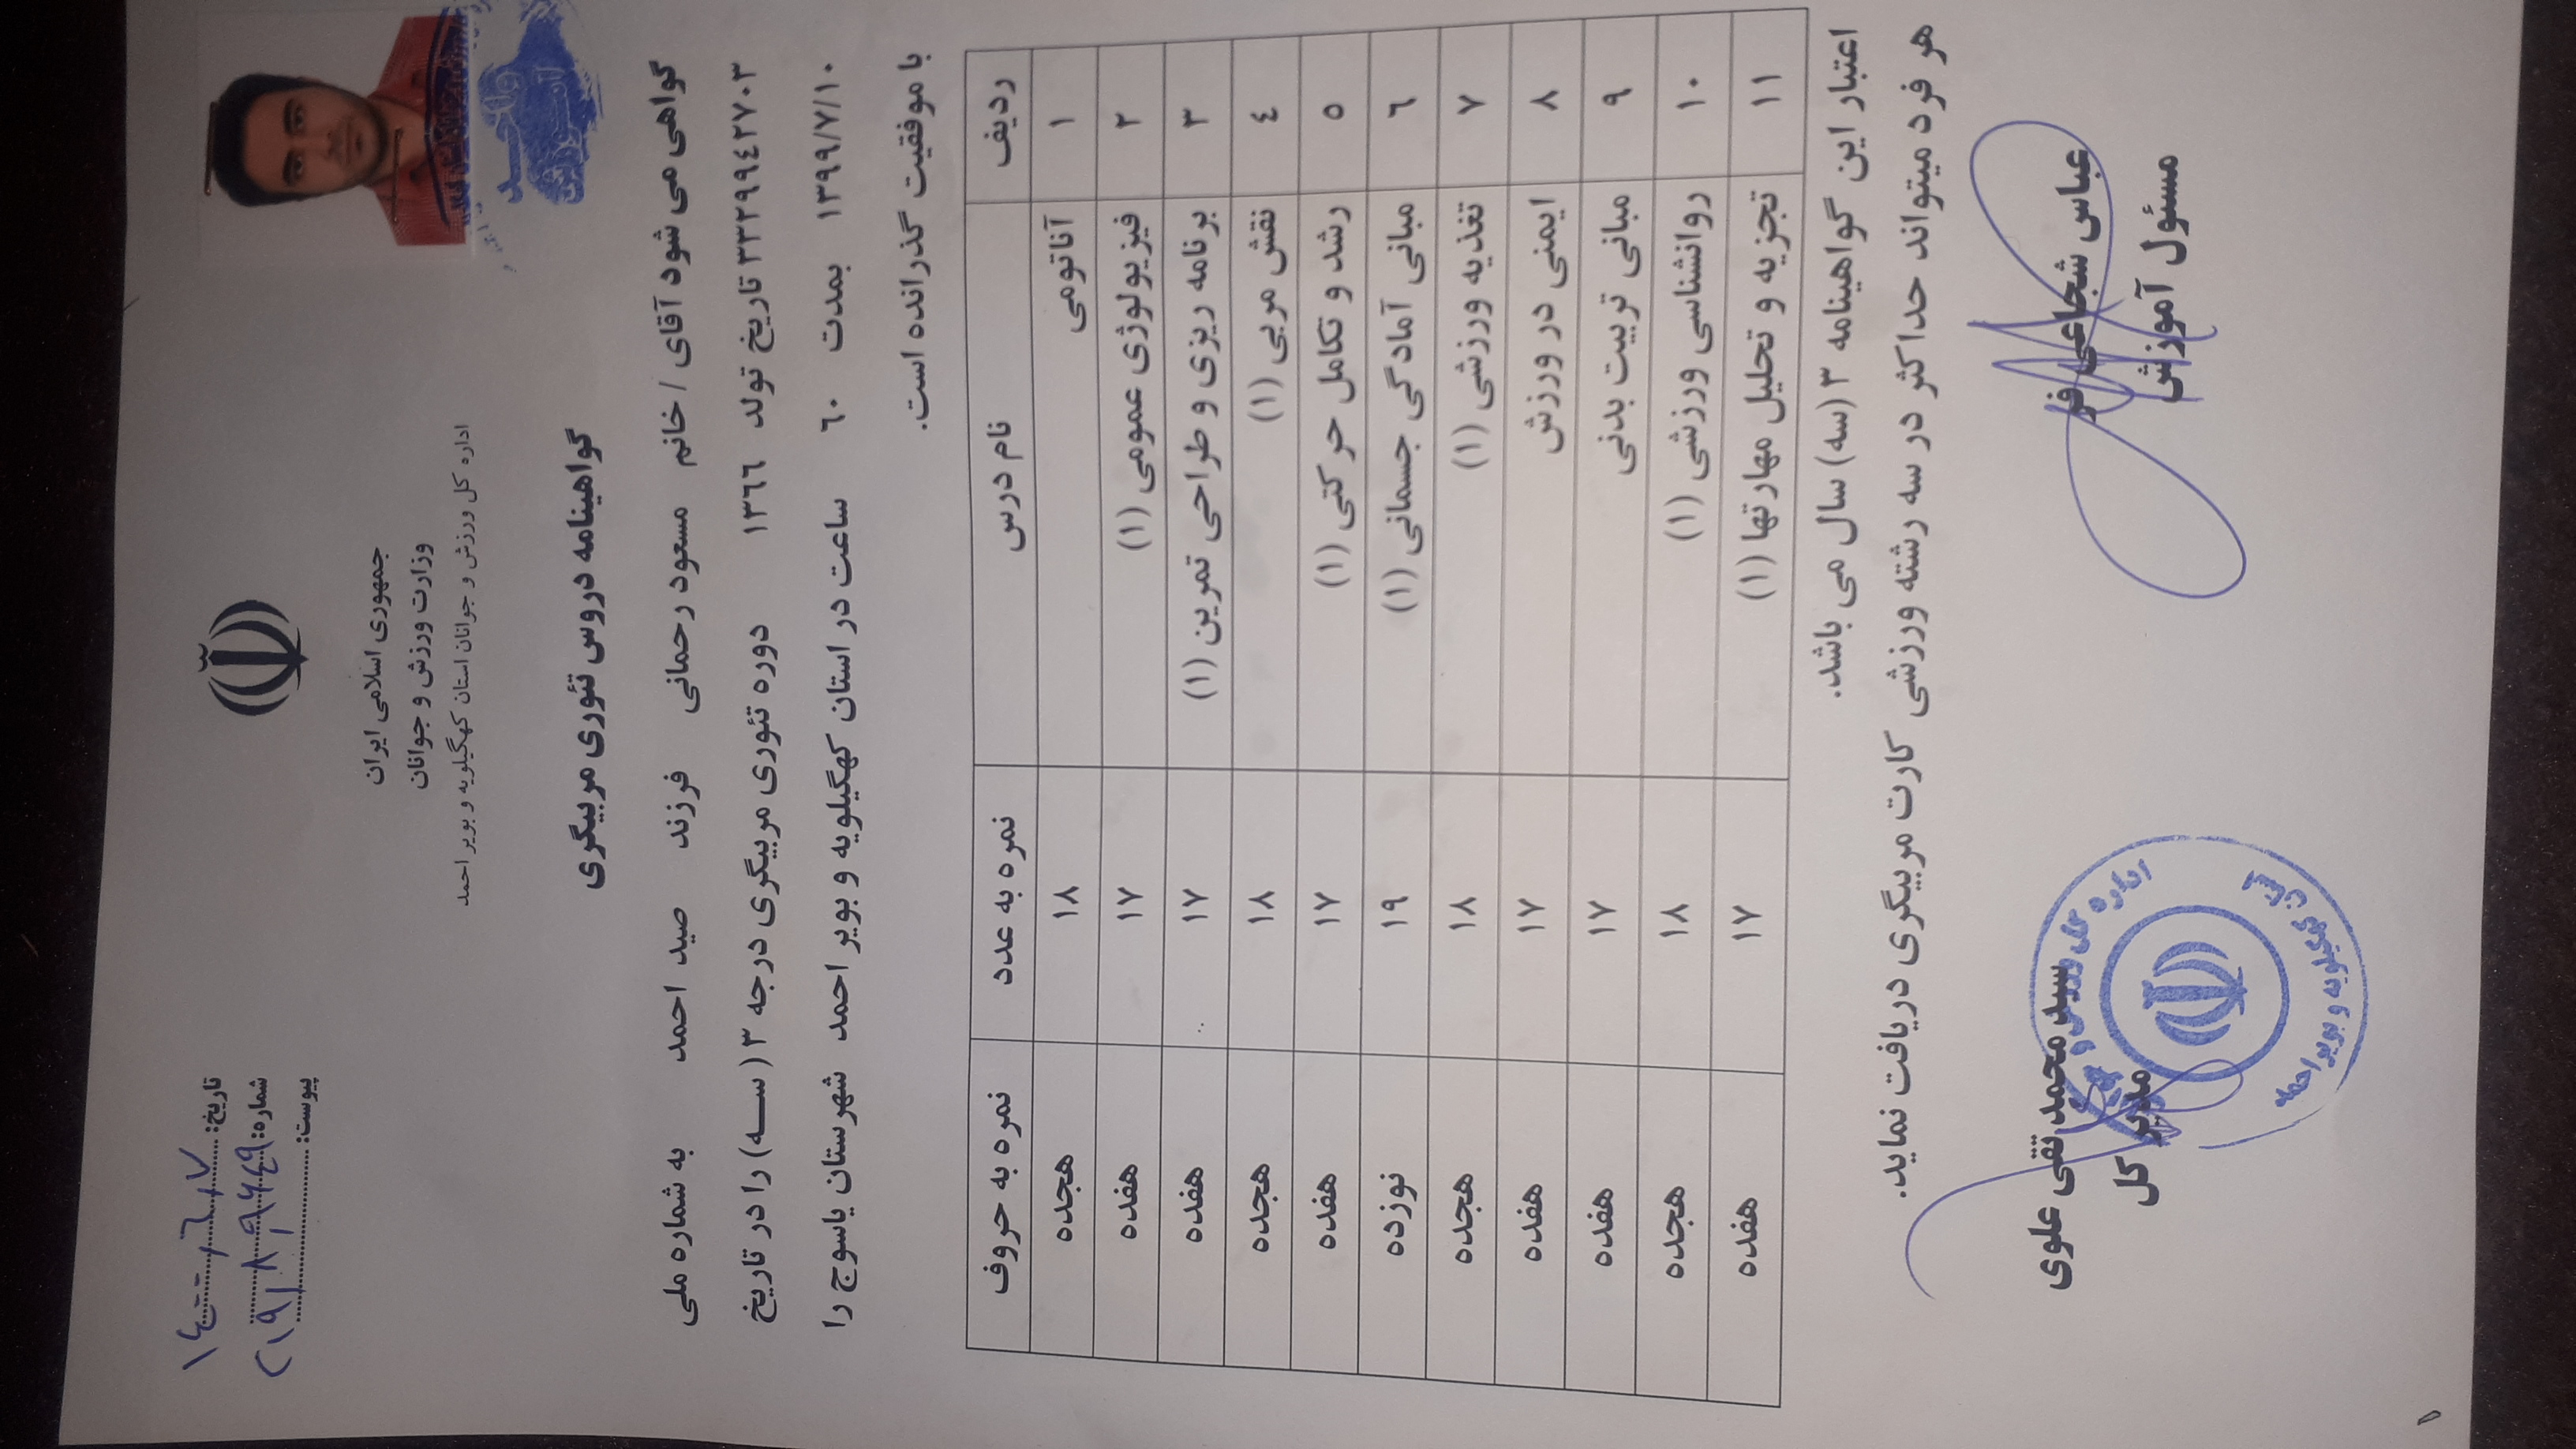 جمهوری اسلامی ایران
وزارت ورزش و جوانان
اداره کل ورزش و جوانان استان کهگیلویه و بویر احمد
تاریخ: ١٤٠٠,٦,٧
شماره:
پیوست:
گواهینامه دروس تئوری مربیگری
گواهی می شود آقای / خانم مسعود رحمانی فرزند صید احمد به شماره ملی
۳۳۲۹۹٤۲۷۰۳ تاریخ تولد ۱۳٦٦ دوره تئوری مربیگری درجه ۳ (سـه) را در تاریخ
۱۳۹۹/۷/۱۰ بمدت ٦۰ ساعت در استان کهگیلویه و بویر احمد شهرستان یاسوج را
با موفقیت گذرانده است.
ردیف نام درس نمره به عدد نمره به حروف
۱ آناتومی ۱۸ هجده
۲ فیزیولوژی عمومی (۱) ۱۷ هفده
۳ برنامه ریزی و طراحی تمرین (۱) ۱۷ هفده
٤ نقش مربی (۱) ۱۸ هجده
٥ رشد و تکامل حرکتی (۱) ۱۷ هفده
٦ مبانی آمادگی جسمانی (۱) ۱۹ نوزده
۷ تغذیه ورزشی (۱) ۱۸ هجده
۸ ایمنی در ورزش ۱۷ هفده
۹ مبانی تربیت بدنی ۱۷ هفده
۱۰ روانشناسی ورزشی (۱) ۱۸ هجده
۱۱ تجزیه و تحلیل مهارتها (۱) ۱۷ هفده
اعتبار این گواهینامه ۳ (سه) سال می باشد.
هر فرد میتواند حداکثر در سه رشته ورزشی کارت مربیگری دریافت نماید.
عباس شجاعی فر
مسئول آموزش
سید محمد تقی علوی
مدیر کل
اداره کل ورزش و
کهگیلویه و بویر احمد